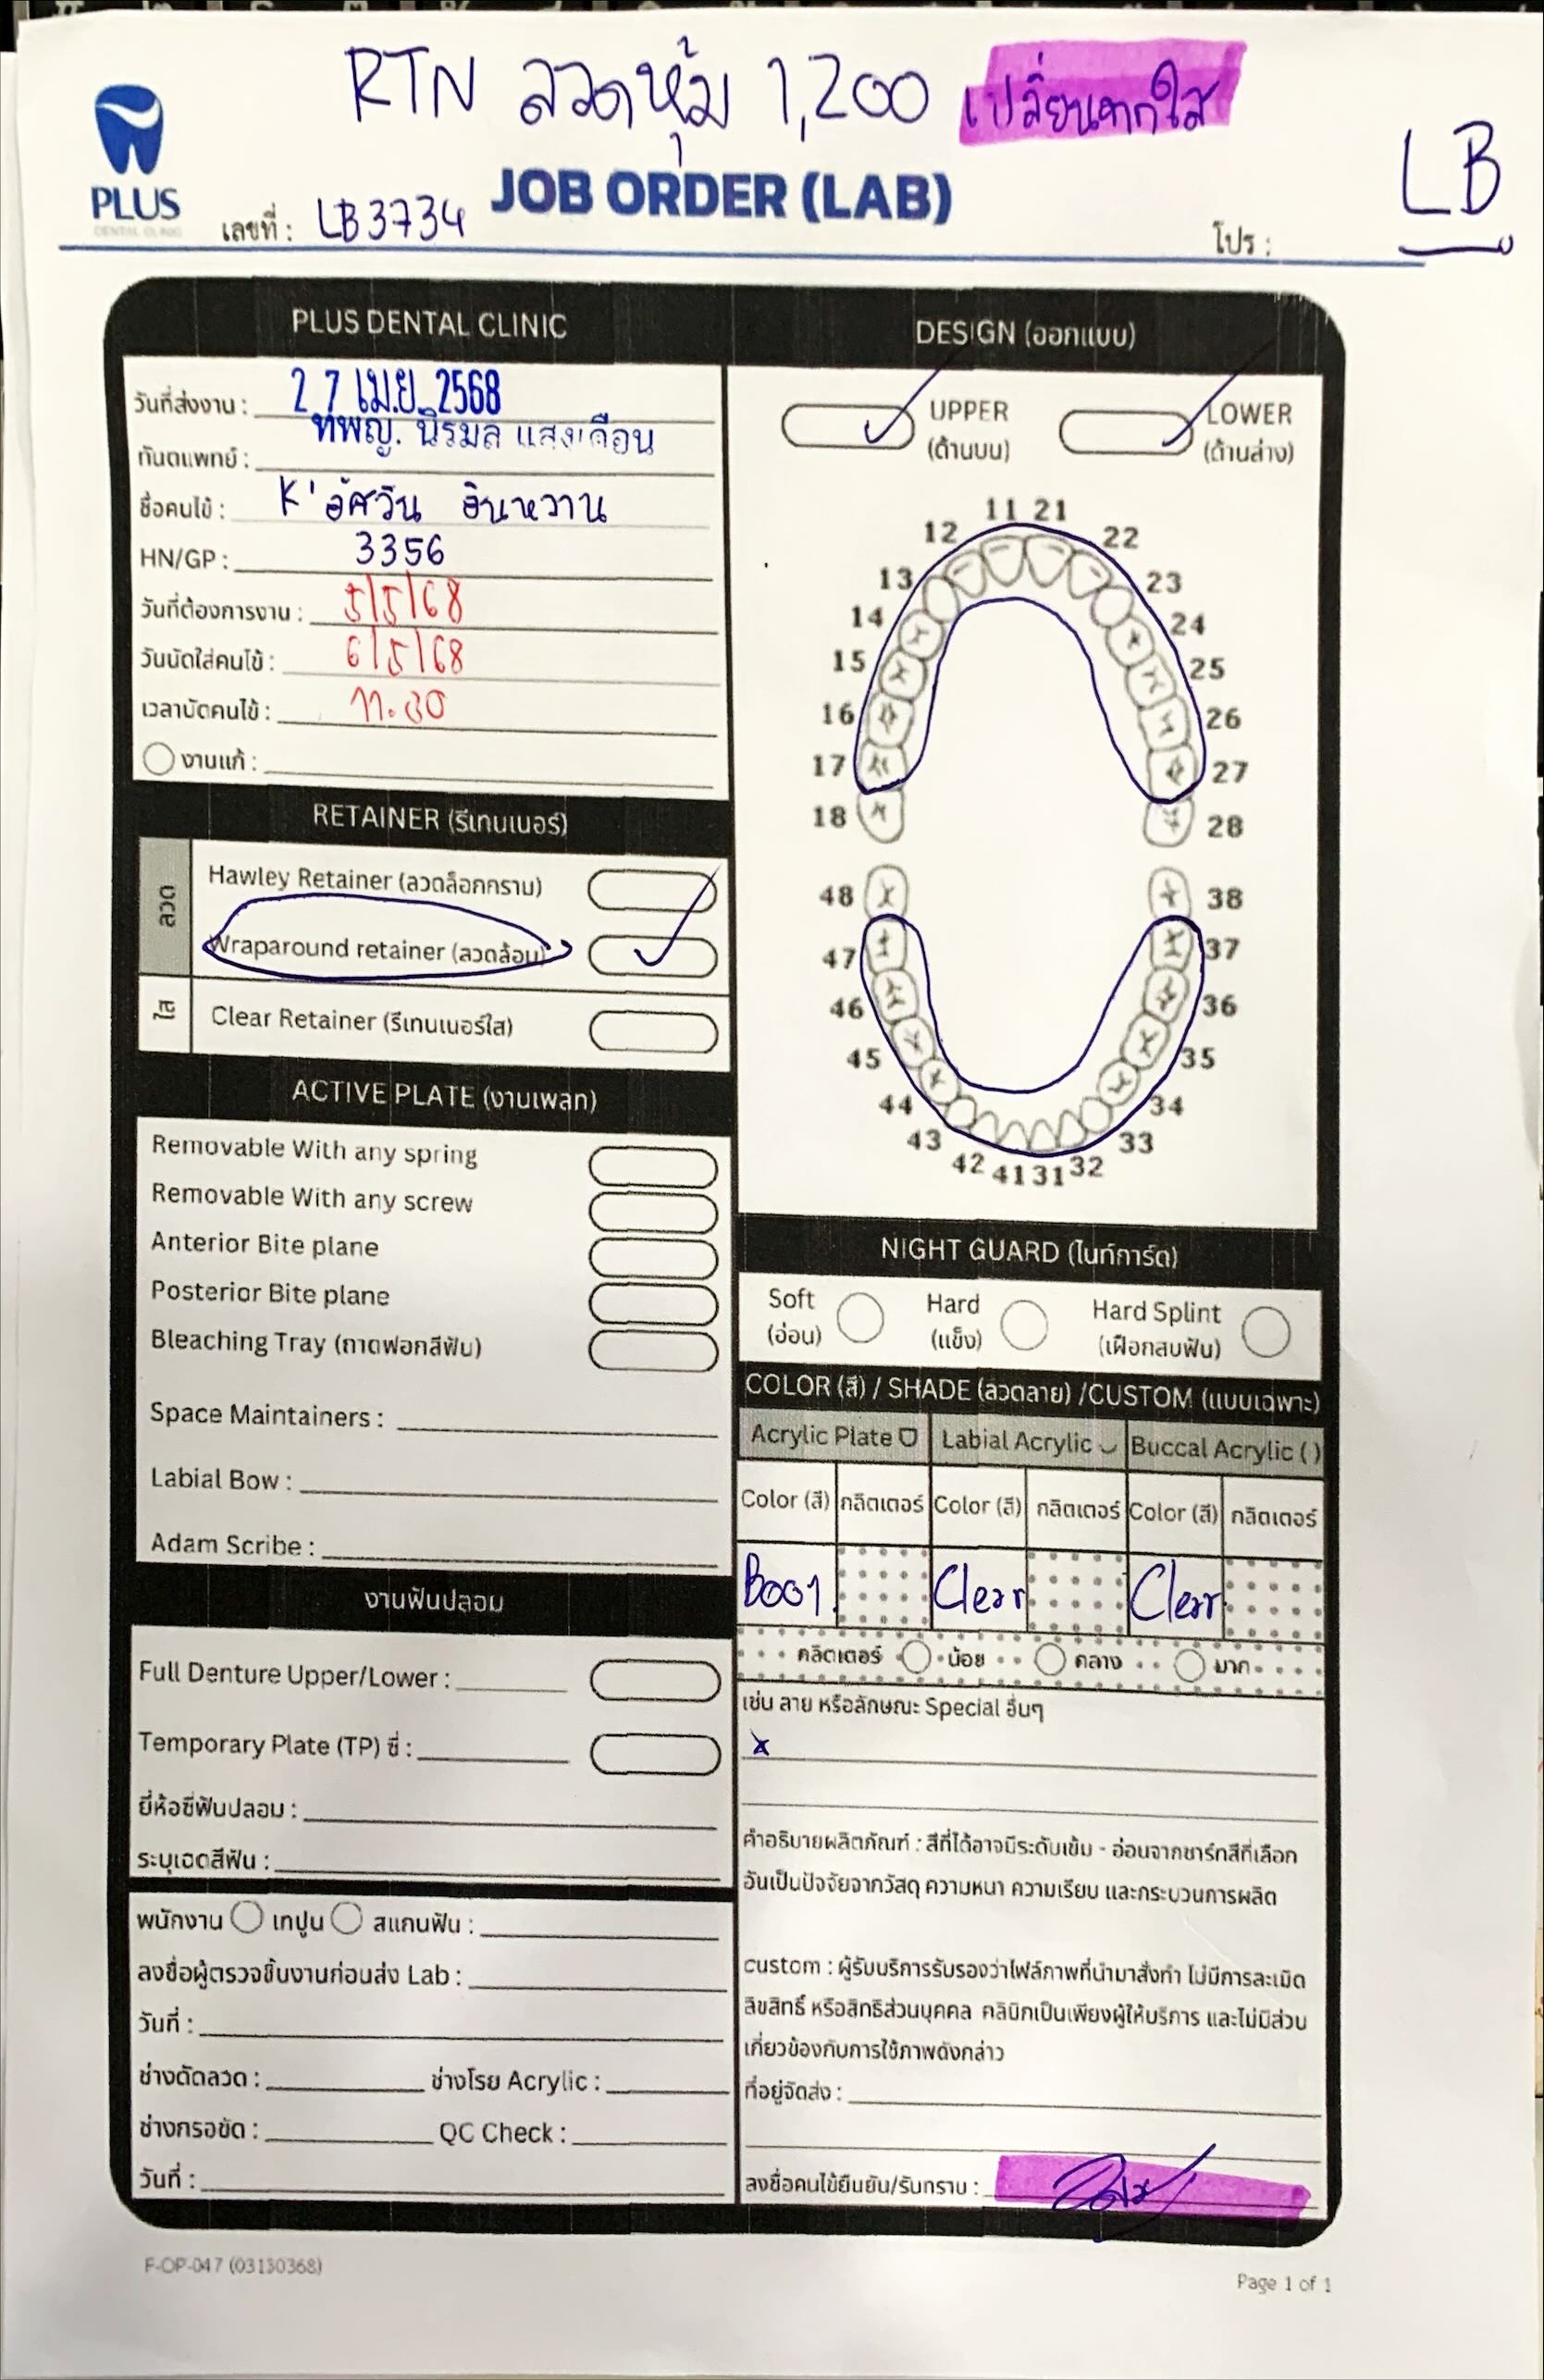 RTN ลวดหุ้ม 1,200 เปลี่ยนจากใส
LB
PLUS
DENTAL CLINIC
JOB ORDER (LAB)
เลขที่ : LB3734
โปร :
PLUS DENTAL CLINIC
วันที่ส่งงาน : 27 เม.ย. 2568
ทันตแพทย์ : ทพญ. นิรมล แสงเดือน
ชื่อคนไข้ : K' อัศวิน อินหวาน
HN/GP : 3356
วันที่ต้องการงาน : 5/5/68
วันนัดใส่คนไข้ : 6/5/68
เวลานัดคนไข้ : 11.00
งานแก้ :
RETAINER (รีเทนเนอร์)
ลวด
Hawley Retainer (ลวดล็อกกราม)
Wraparound retainer (ลวดล้อม)
ใส
Clear Retainer (รีเทนเนอร์ใส)
ACTIVE PLATE (งานเพลท)
Removable With any spring
Removable With any screw
Anterior Bite plane
Posterior Bite plane
Bleaching Tray (ถาดฟอกสีฟัน)
Space Maintainers :
Labial Bow :
Adam Scribe :
งานฟันปลอม
Full Denture Upper/Lower :
Temporary Plate (TP) ซี่ :
ยี่ห้อซี่ฟันปลอม :
ระบุเฉดสีฟัน :
พนักงาน เทปูน สแกนฟัน :
ลงชื่อผู้ตรวจชิ้นงานก่อนส่ง Lab :
วันที่ :
ช่างดัดลวด : ช่างโรย Acrylic :
ช่างกรอขัด : QC Check :
วันที่ :
DESIGN (ออกแบบ)
UPPER (ด้านบน) LOWER (ด้านล่าง)
11 21
12 22
13 23
14 24
15 25
16 26
17 27
18 28
48 38
47 37
46 36
45 35
44 34
43 33
42 41 31 32
NIGHT GUARD (ไนท์การ์ด)
Soft (อ่อน) Hard (แข็ง) Hard Splint (เฝือกสบฟัน)
COLOR (สี) / SHADE (ลวดลาย) /CUSTOM (แบบเฉพาะ)
Acrylic Plate Labial Acrylic Buccal Acrylic ( )
Color (สี) กลิตเตอร์ Color (สี) กลิตเตอร์ Color (สี) กลิตเตอร์
B001 Clear Clear
กลิตเตอร์ น้อย กลาง มาก
เช่น ลาย หรือลักษณะ Special อื่นๆ
x
คำอธิบายผลิตภัณฑ์ : สีที่ได้อาจมีระดับเข้ม - อ่อนจากชาร์ทสีที่เลือก
อันเป็นปัจจัยจากวัสดุ ความหนา ความเรียบ และกระบวนการผลิต
custom : ผู้รับบริการรับรองว่าไฟล์ภาพที่นำมาสั่งทำ ไม่มีการละเมิด
ลิขสิทธิ์ หรือสิทธิส่วนบุคคล คลินิกเป็นเพียงผู้ให้บริการ และไม่มีส่วน
เกี่ยวข้องกับการใช้ภาพดังกล่าว
ที่อยู่จัดส่ง :
ลงชื่อคนไข้ยืนยัน/รับทราบ :
F-OP-047 (03130368)
Page 1 of 1